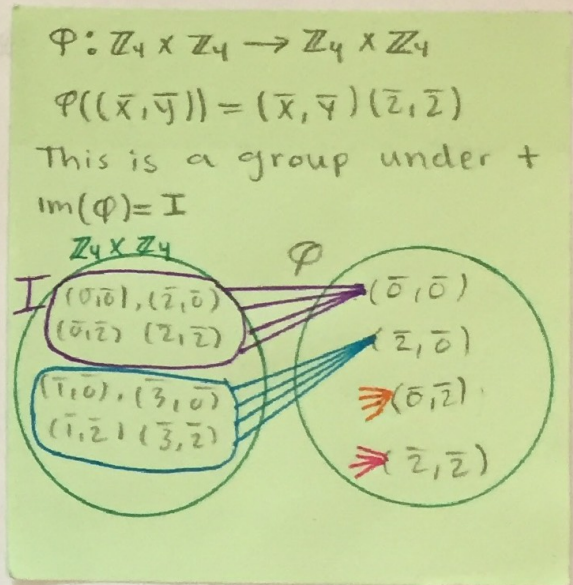 φ: ℤ₄ × ℤ₄ → ℤ₄ × ℤ₄
φ((x̄,ȳ)) = (x̄,ȳ)(2̄,2̄)
This is a group under +
im(φ)= I
ℤ₄ × ℤ₄
φ
I
(0̄,0̄), (2̄,0̄)
(0̄,2̄) (2̄,2̄)
(1̄,0̄), (3̄,0̄)
(1̄,2̄) (3̄,2̄)
(0̄,0̄)
(2̄,0̄)
(0̄,2̄)
(2̄,2̄)